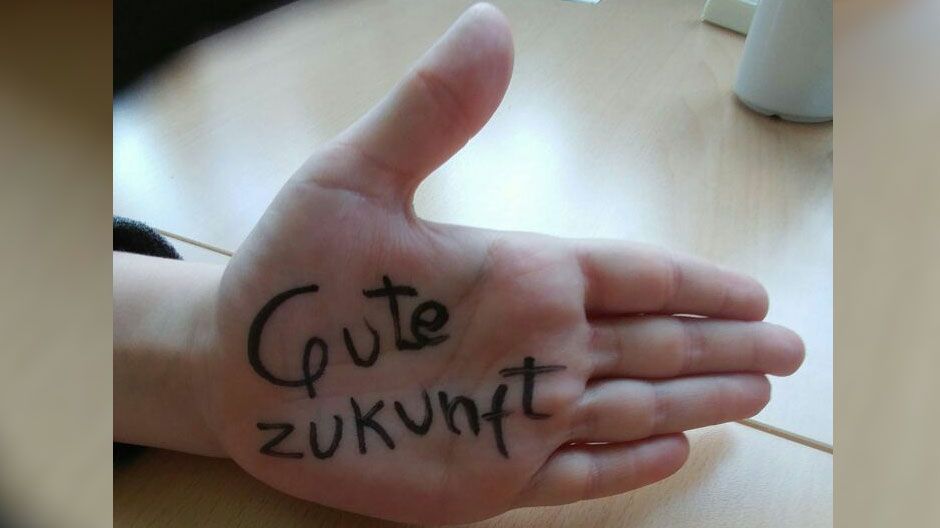 Gute
zukunft